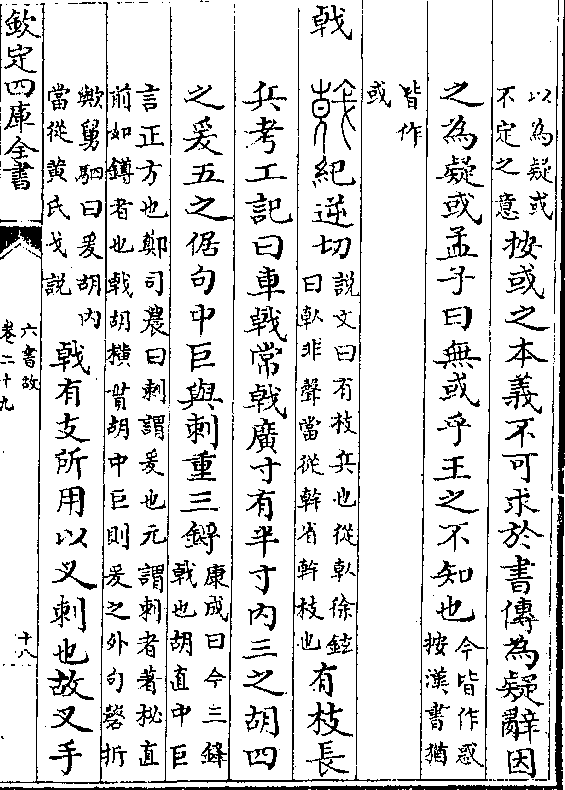 以為疑或
不定之意
按或之本義不可求於書傳為疑辭因
之為疑或孟子曰無或乎王之不知也
今皆作惑
按漢書猶
皆作
或
戟
紀逆切
說文曰有枝兵也從倝徐鍇
曰倝非聲當從榦省榦枝也
有枝長
兵考工記曰車戟常戟廣寸有半寸内三之胡四
之爰五之倨句中巨與刺重三鋝
康成曰今三鋒
戟也胡直中巨
言正方也鄭司農曰刺謂爰也元謂刺者著柲直
前如鐏者也戟胡横貫胡中巨則爰之外句磬折
歟舅駟曰爰胡内
當從黄氏戈說
戟有支所用以叉刺也故叉手
欽定四庫全書
六書故
卷二十九
十八